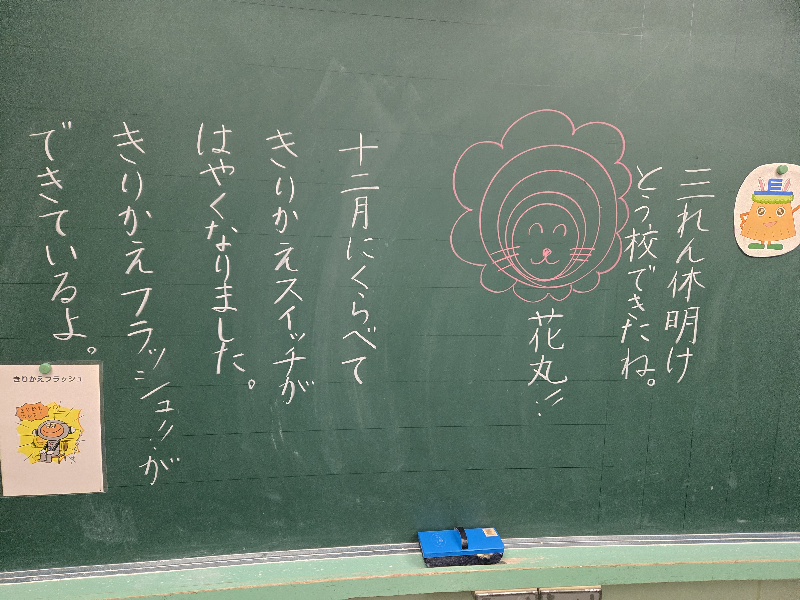 三れん休明け
とう校できたね。
花丸!!
十二月にくらべて
きりかえスイッチが
はやくなりました。
きりかえフラッシュ!!が
できているよ。
きりかえフラッシュ